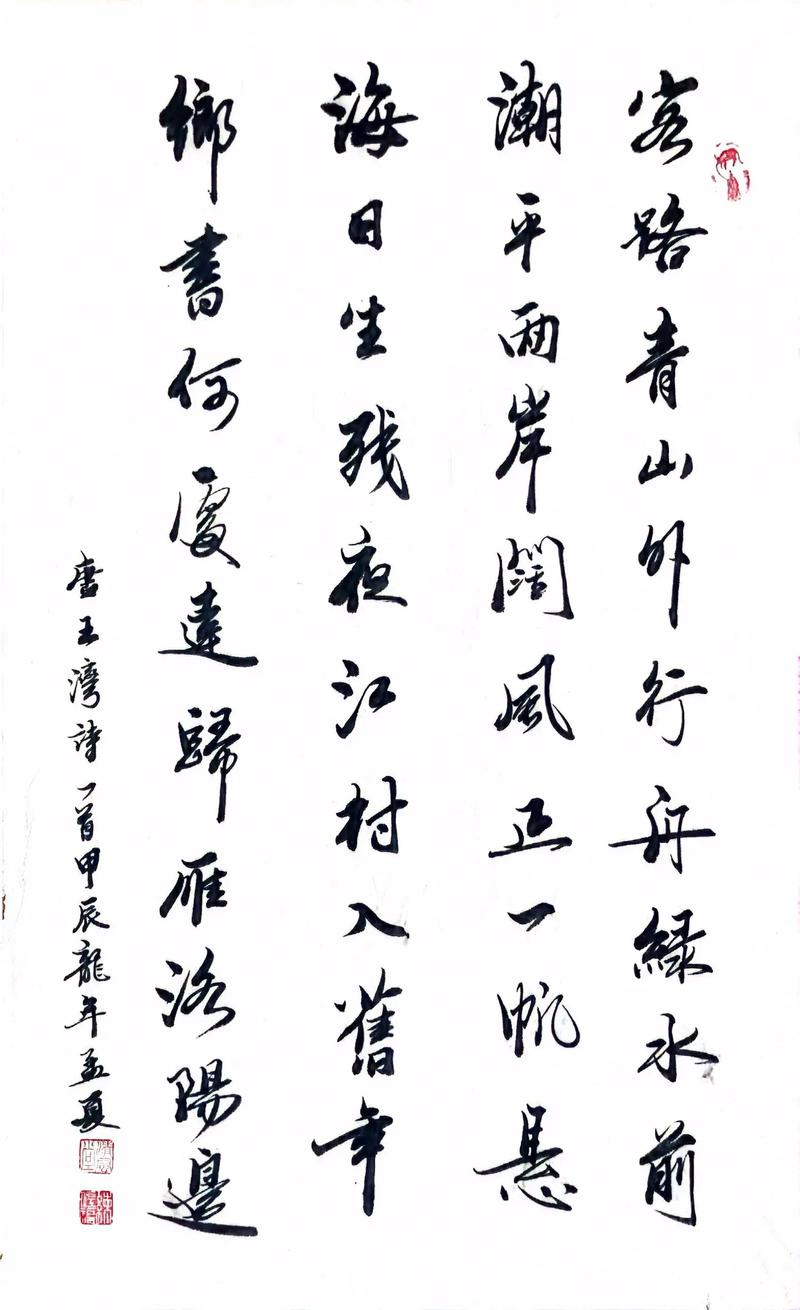 客路青山外行舟綠水前
潮平兩岸闊風正一帆懸
海日生残夜江村入舊年
鄉書何處達歸雁洛陽邊
唐王灣詩一首甲辰龍年孟夏